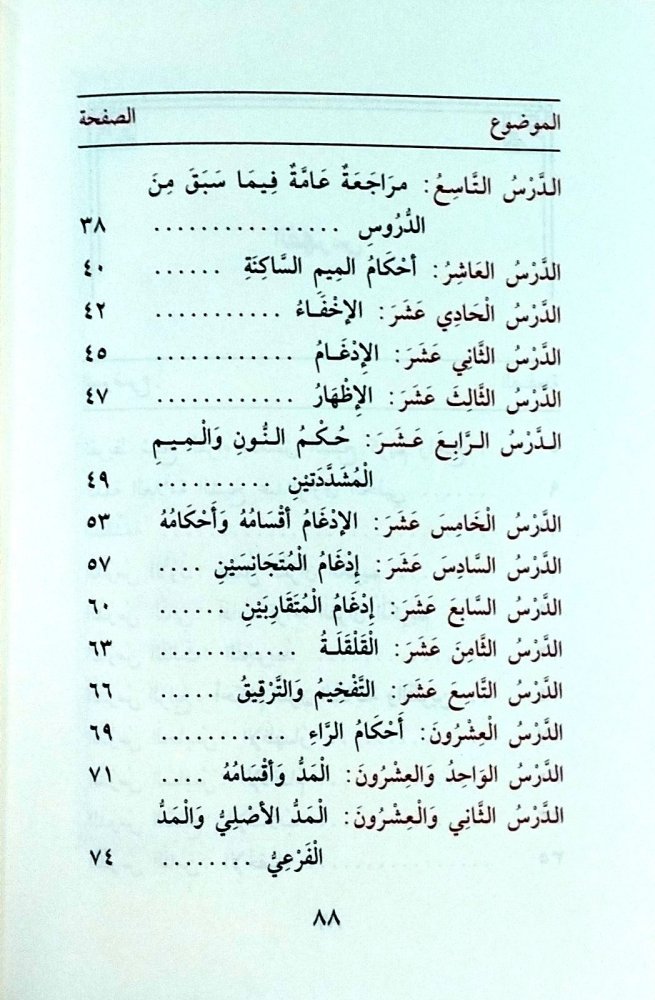 الموضوع الصفحة
الدَّرْسُ التَّاسِعُ: مرَاجَعَةٌ عَامَّةٌ فِيمَا سَبَقَ مِنَ
الدُّرُوسِ ................ ٣٨
الدَّرْسُ العَاشِرُ: أحْكَامُ المِيمِ السَّاكِنَةِ ...... ٤٠
الدَّرْسُ الْحَادِي عَشَرَ: الإخْفَـاءُ ........... ٤٢
الدَّرْسُ الثَّانِي عَشَرَ: الإِدْغَـامُ ............ ٤٥
الدَّرْسُ الثَّالِثَ عَشَرَ: الإِظْهَارُ ............ ٤٧
الـدَّرْسُ الـرَّابِعَ عَـشَـرَ: حُـكْـمُ الـنُّـونِ وَالْـمِـيـمِ
الْمُشَدَّدَتَيْنِ .......... ٤٩
الدَّرْسُ الْخَامِسَ عَشَرَ: الإدْغَامُ أقْسَامُهُ وَأَحْكَامُهُ ٥٣
الدَّرْسُ السَّادِسَ عَشَرَ: إدْغَامُ الْمُتَجَانِسَيْنِ .... ٥٧
الدَّرْسُ السَّابِعَ عَشَرَ: إدْغَامُ الْمُتَقَارِبَيْنِ ...... ٦٠
الدَّرْسُ الثَّامِنَ عَشَرَ: الْقَلْقَلَـةُ ............ ٦٣
الدَّرْسُ التَّاسِعَ عَشَرَ: التَّفْخِيمُ وَالتَّرْقِيقُ ..... ٦٦
الدَّرْسُ الْعِشْرُونَ: أَحْكَامُ الرَّاءِ ........... ٦٩
الدَّرْسُ الوَاحِدُ وَالعِشْرُونَ: الْمَدُّ وَأقْسَامُهُ .... ٧١
الدَّرْسُ الثَّانِي وَالْعِشْرُونَ: الْمَدُّ الأصْلِيُّ وَالْمَدُّ
الْفَرْعِيُّ ........ ٧٤
٨٨